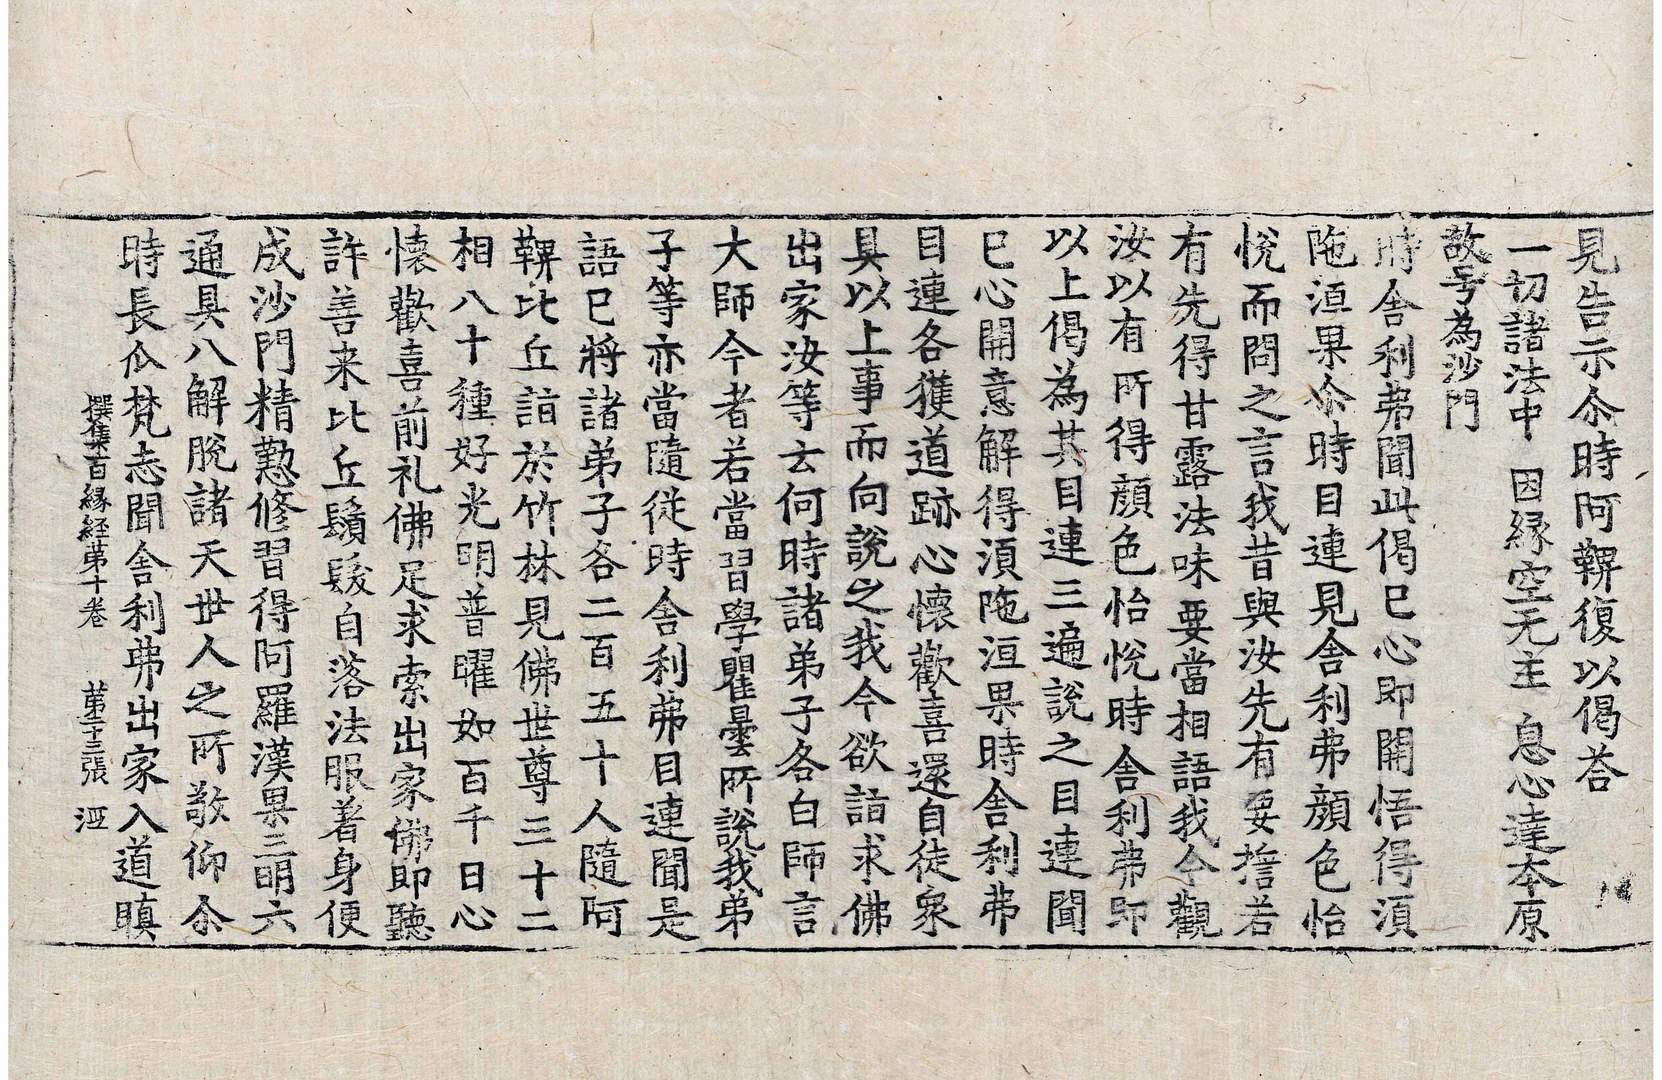 見告示尒時阿鞞復以偈荅
一切諸法中 因縁空无主 息心達本原
故号為沙門
時舎利弗聞此偈已心即開悟得湏
陁洹果尒時目連見舎利弗顔色怡
悅而問之言我昔與汝先有要擔若
有先得甘露法味要當相語我今觀
汝以有所得顔色怡悅時舎利弗即
以上偈為其目連三遍說之目連聞
已心開意解得湏陁洹果時舎利弗
目連各獲道跡心懷歡喜還自徒衆
具以上事而向說之我今欲詣求佛
出家汝等云何時諸弟子各白師言
大師今者若當習學瞿曇所說我弟
子等亦當隨從時舎利弗目連聞是
語已將諸弟子各二百五十人隨阿
鞞比丘詣於竹林見佛世尊三十二
相八十種好光明普曜如百千日心
懷歡喜前礼佛足求索出家佛即聽
許善来比丘鬚髮自落法服著身便
成沙門精懃修習得阿羅漢果三明六
通具八解脫諸天世人之所敬仰尒
時長爪梵志聞舎利弗出家入道瞋
撰集百縁経苐十卷 苐二十三張 㴲